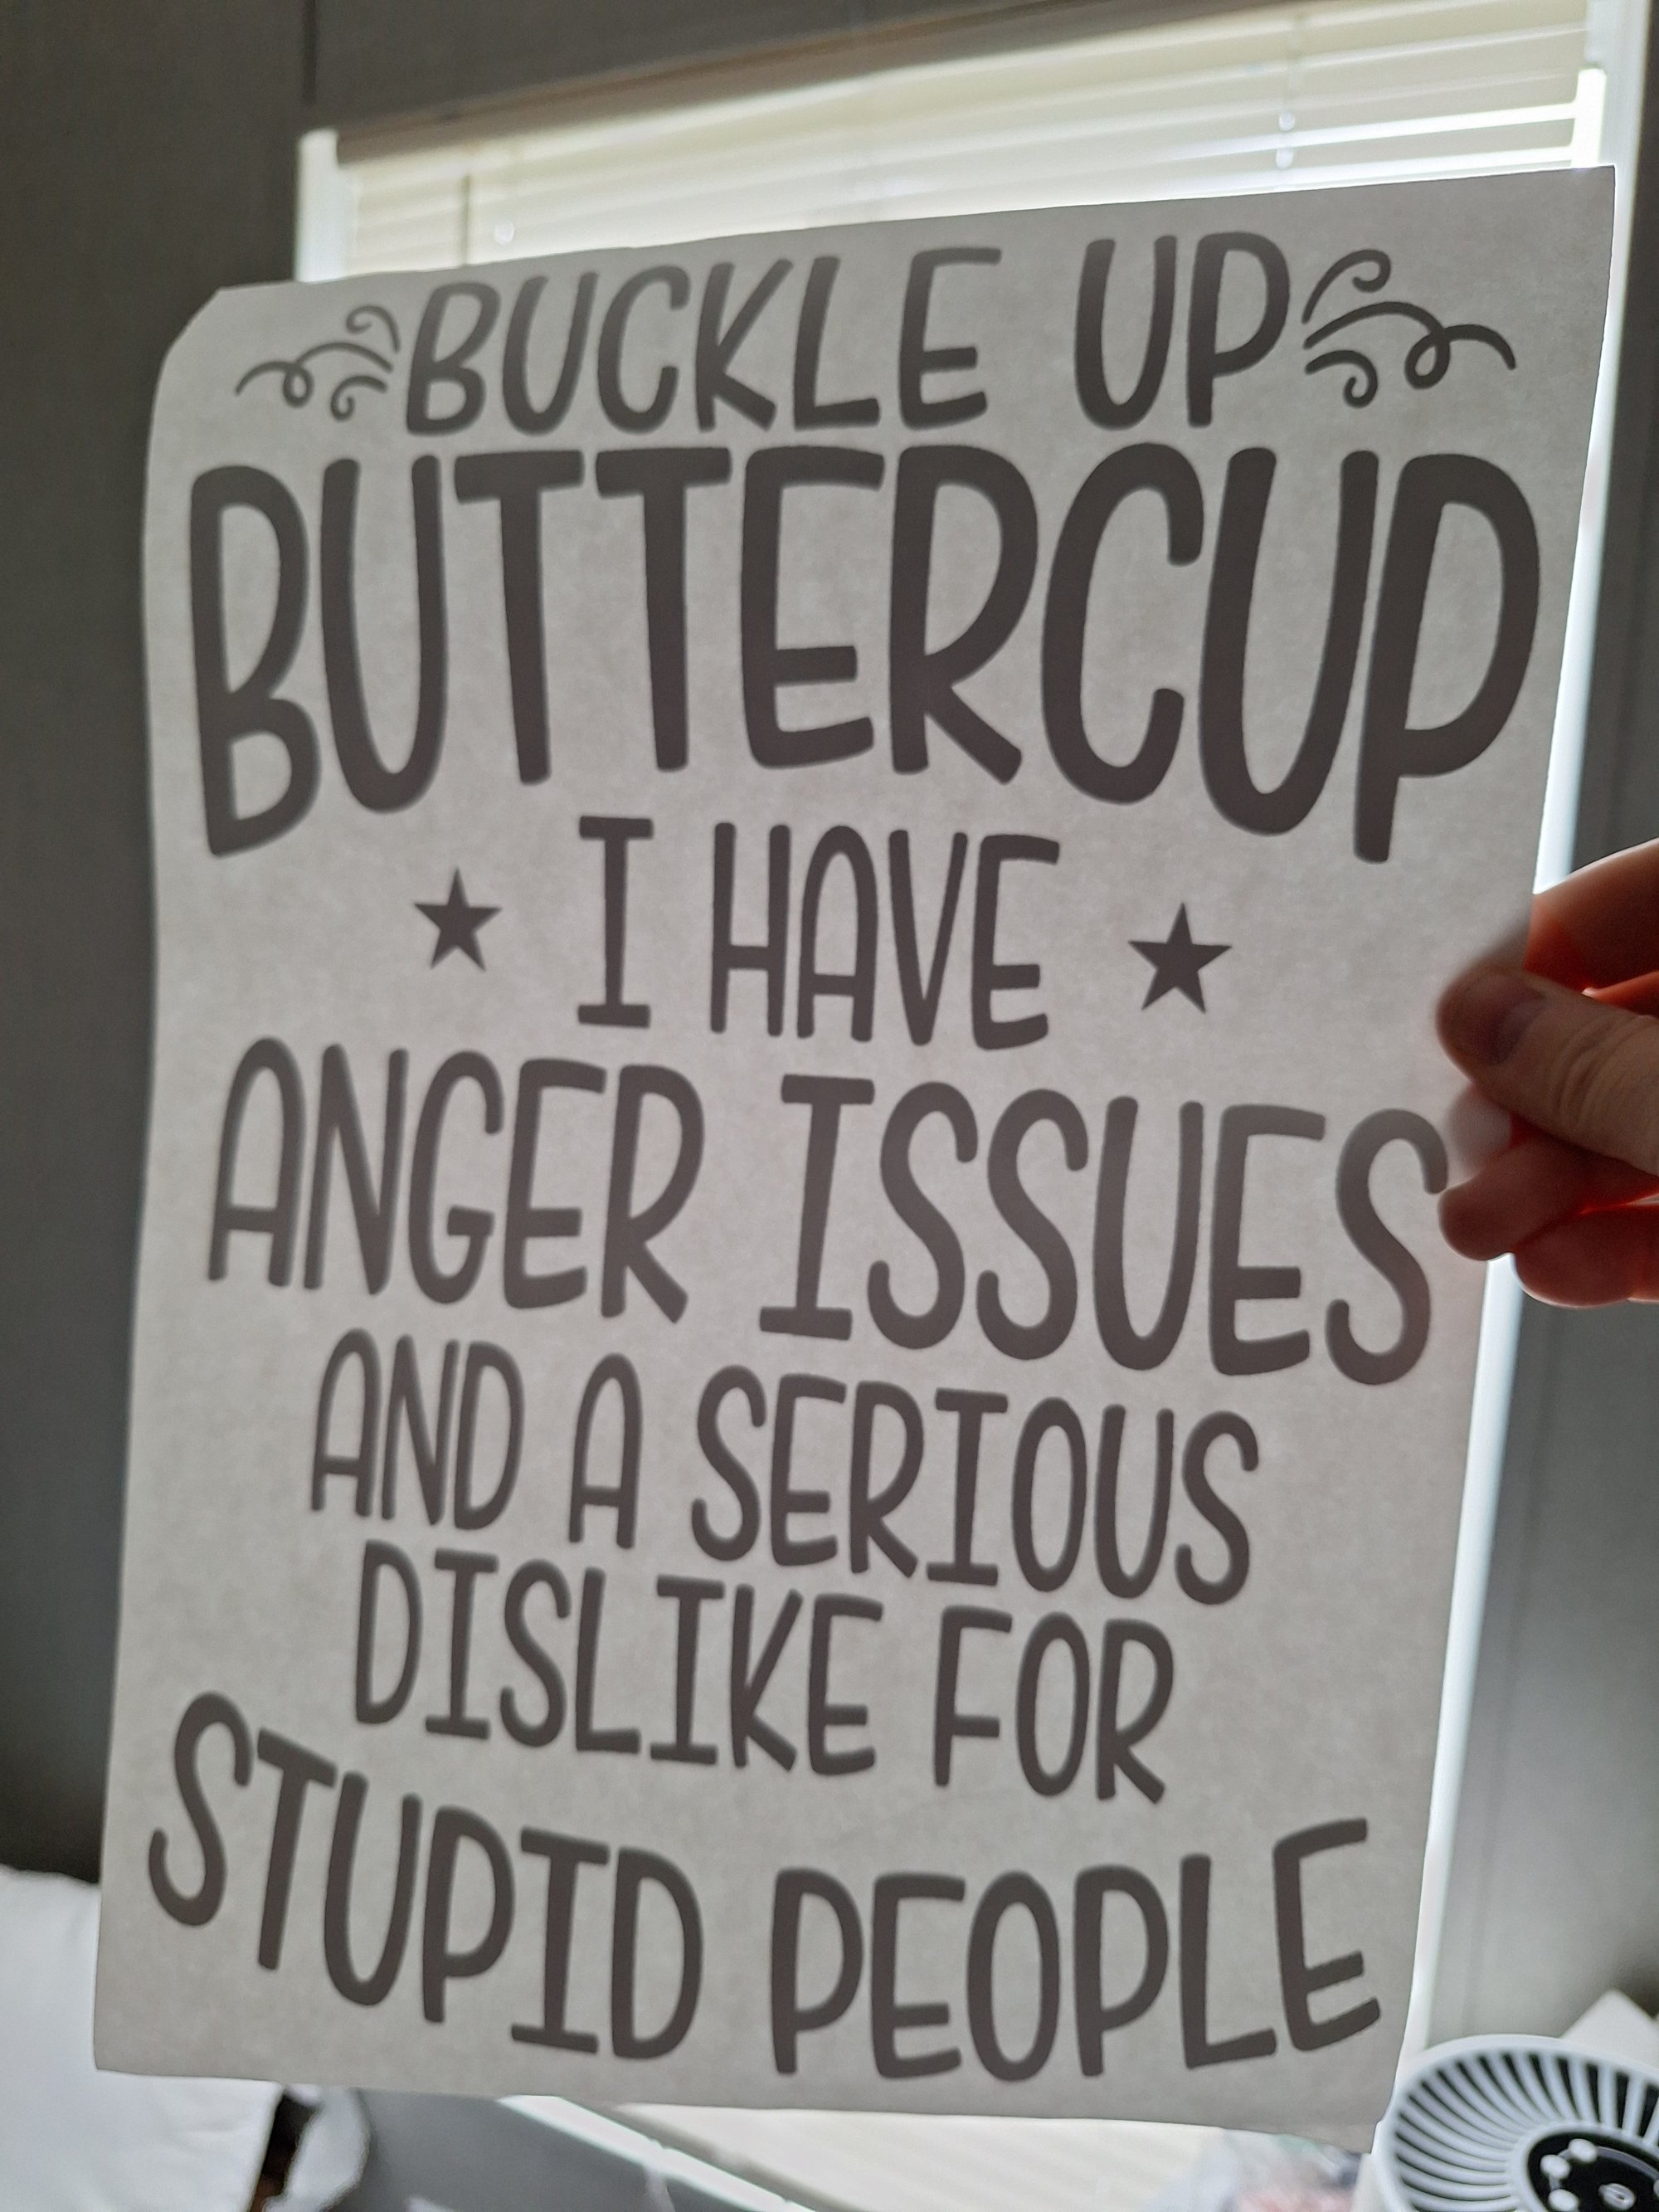 BUCKLE UP
BUTTERCUP
I HAVE
ANGER ISSUES
AND A SERIOUS
DISLIKE FOR
STUPID PEOPLE